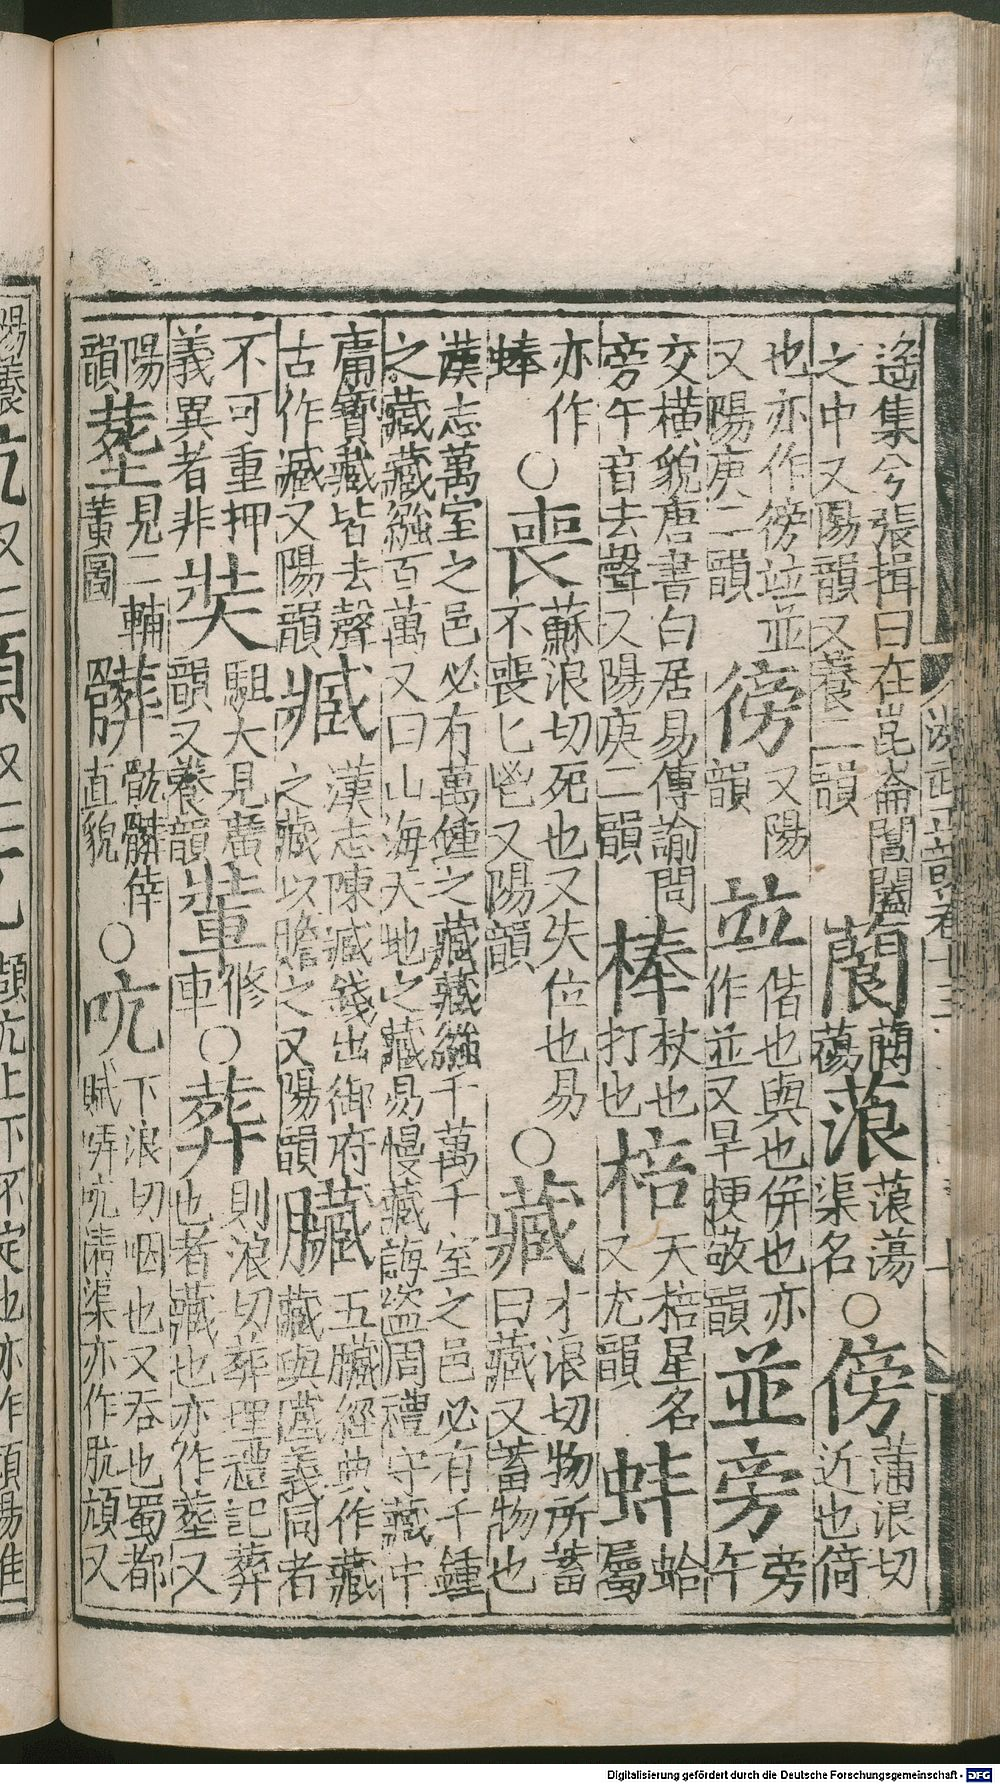 遥集兮張揖曰在崑崙閶闔
之中又陽韻又養二韻
閬
䕞
蒗
蒗蕩
渠名
○
傍
蒲浪切
近也倚
也亦作徬竝並
又陽庚二韻
徬
又陽
韻
並
偕也與也併也亦
作並又旱梗敬韻
並
旁
旁
午
交橫貌唐書白居易傳諭問
旁午音去聲又陽庚二韻
棒
杖也
打也
棓
天棓星名
又尤韻
蚌
蛤
屬
亦作
蜯
○
喪
蘇浪切死也又失位也易
不喪匕鬯又陽韻
○
藏
才浪切物所蓄
曰藏又蓄物也
漢志萬室之邑必有萬鍾之藏藏繈千萬千室之邑必有千鍾
之藏藏繈百萬又曰山海天地之藏易慢藏誨盜周禮守藏中
庸寶藏皆去聲
古作臧又陽韻
臧
漢志陳臧錢出御府
之藏以贍之又陽韻
臟
五臟經典作藏
藏與臟義同者
不可重押
義異者非
奘
駔大見廣
韻又養韻
裝
修
車
○
葬
則浪切葬埋禮記葬
也者藏也亦作塟又
陽
韻
塟
見二輔
黃圖
髒
骯髒倖
直貌
○
吭
下浪切咽也又吞也蜀都
賦哢吭清渠亦作肮頏又